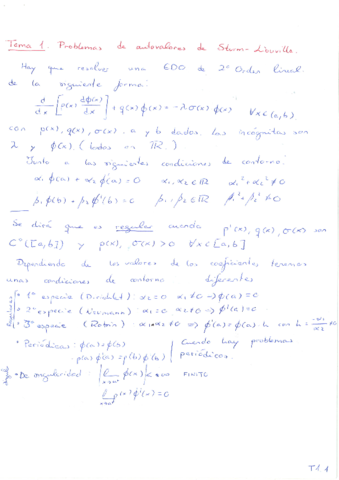 Tema 1. Problemas de autovalores de Sturm-Liouville.
Hay que resolver una EDO de 2º Orden lineal
de la siguiente forma:
d/dx [p(x) dϕ(x)/dx] + q(x)ϕ(x) = -λσ(x)ϕ(x) ∀x∈(a,b)
con p(x), q(x), σ(x), a y b dados. Las incógnitas son
λ y ϕ(x) (todas en ℝ)
Junto a las siguientes condiciones de contorno:
α₁ϕ(a) + α₂ϕ'(a) = 0 α₁, α₂ ∈ ℝ α₁² + α₂² ≠ 0
β₁ϕ(b) + β₂ϕ'(b) = 0 β₁, β₂ ∈ ℝ β₁² + β₂² ≠ 0
Se dirá que es regular cuando p'(x), q(x), σ(x) son
C⁰([a,b]) y p(x), σ(x) > 0 ∀x∈[a,b]
Dependiendo de los valores de los coeficientes, tenemos
unas condiciones de contorno diferentes
1ª especie (Dirichlet): α₂=0 α₁≠0 → ϕ(a)=0
2ª especie (Neumann): α₁=0 α₂≠0 → ϕ'(a)=0
3ª especie (Robin): α₁α₂≠0 → ϕ'(a)=ϕ(a) h con h = -α₁/α₂ ≠0
• Periódicas: ϕ(a)=ϕ(b) Cuando hay problemas
p(a)ϕ'(a)=p(b)ϕ'(b) periódicos.
• De singularidad: |lim ϕ(x)| < ∞ FINITO
lim p(x)ϕ'(x)=0
T1 1